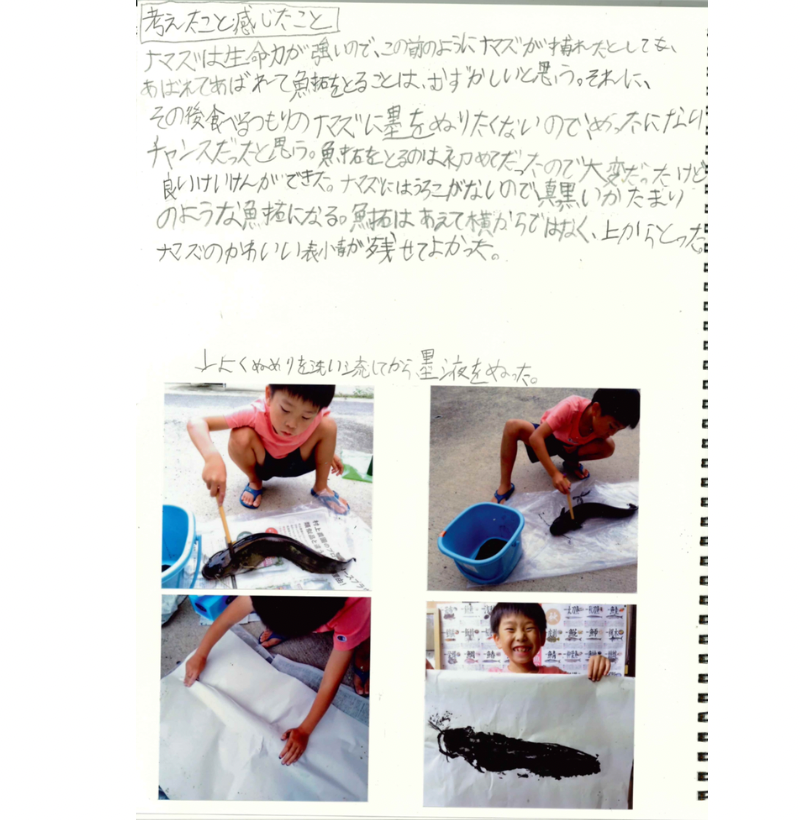 考えたこと感じたこと
ナマズは生命力が強いので、この前のようにナマズが捕れたとしても、
あばれてあばれて魚拓をとることは、むずかしいと思う。それに、
その後食べるつもりのナマズに墨をぬりたくないのでめったにない
チャンスだったと思う。魚拓をとるのは初めてだったので大変だったけど
良いけいけんができた。ナマズにはうろこがないので真黒いかたまり
のような魚拓になる。魚拓はあえて横からではなく、上からとった。
ナマズのかわいい表情が残せてよかった。
↓よくぬめりを洗い流してから墨液をぬった。